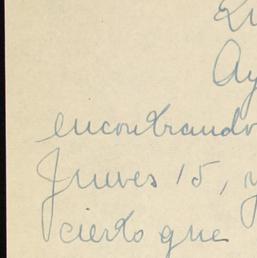 Ay
encontrando
Jueves 15, y
cierto que